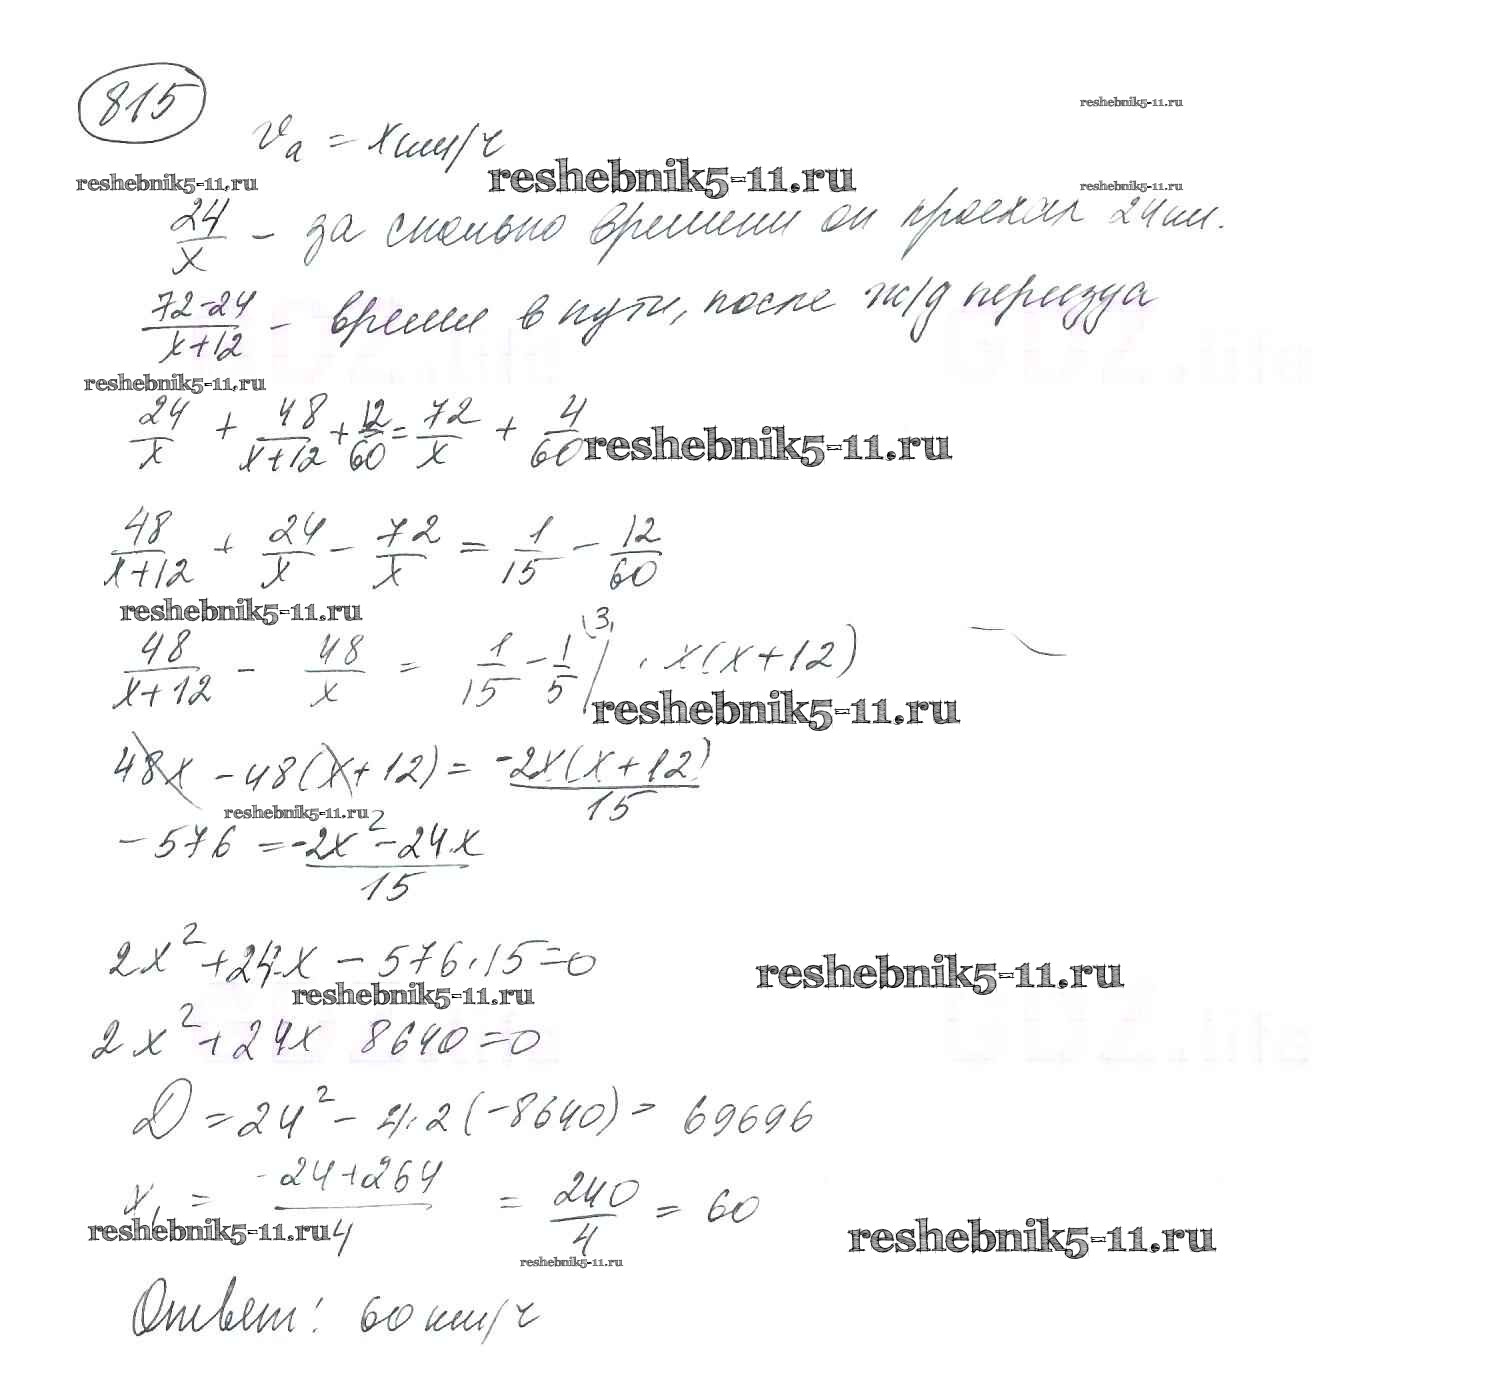 815
vₐ = x км/ч
reshebnik5-11.ru
reshebnik5-11.ru
reshebnik5-11.ru
reshebnik5-11.ru
24/x – за сколько времени он проехал 24 км.
(72-24)/(x+12) – время в пути, после ж/д переезда
reshebnik5-11.ru
24/x + 48/(x+12) + 12/60 = 72/x + 4/60
reshebnik5-11.ru
48/(x+12) + 24/x - 72/x = 1/15 - 12/60
reshebnik5-11.ru
48/(x+12) - 48/x = 1/15 - 1/5 (3 | · x(x+12)
reshebnik5-11.ru
48x - 48(x+12) = -2x(x+12)/15
reshebnik5-11.ru
-576 = (-2x² - 24x)/15
2x² + 24x - 576·15 = 0
reshebnik5-11.ru
reshebnik5-11.ru
2x² + 24x 8640 = 0
D = 24² - 4·2(-8640) = 69696
x₁ = (-24+264)/4 = 240/4 = 60
reshebnik5-11.ru
reshebnik5-11.ru
reshebnik5-11.ru
Ответ: 60 км/ч